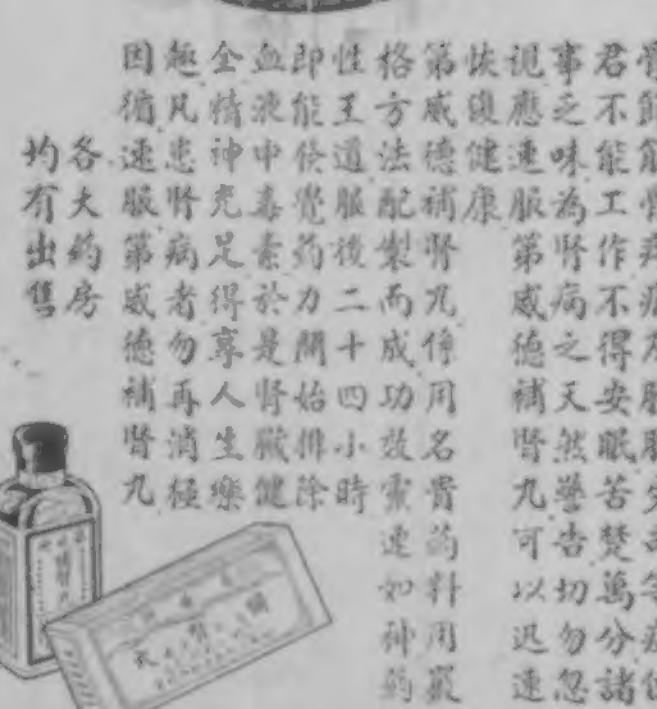 君不能工作不得安眠苦楚萬分諸
事乏味為腎病之天然警告切勿忽
視應速服第威德補腎丸可以迅速
恢復健康
第威德補腎丸係用名貴葯料用嚴
格方法配製而成功效靈速如神葯
性王道服後二十四小時
即能覺葯力開始排除
血液中毒素於是腎臟健
全精神充足得享人生樂
趣凡患腎病者勿再消極
因循速服第威德補腎丸
各大葯房
均有出售